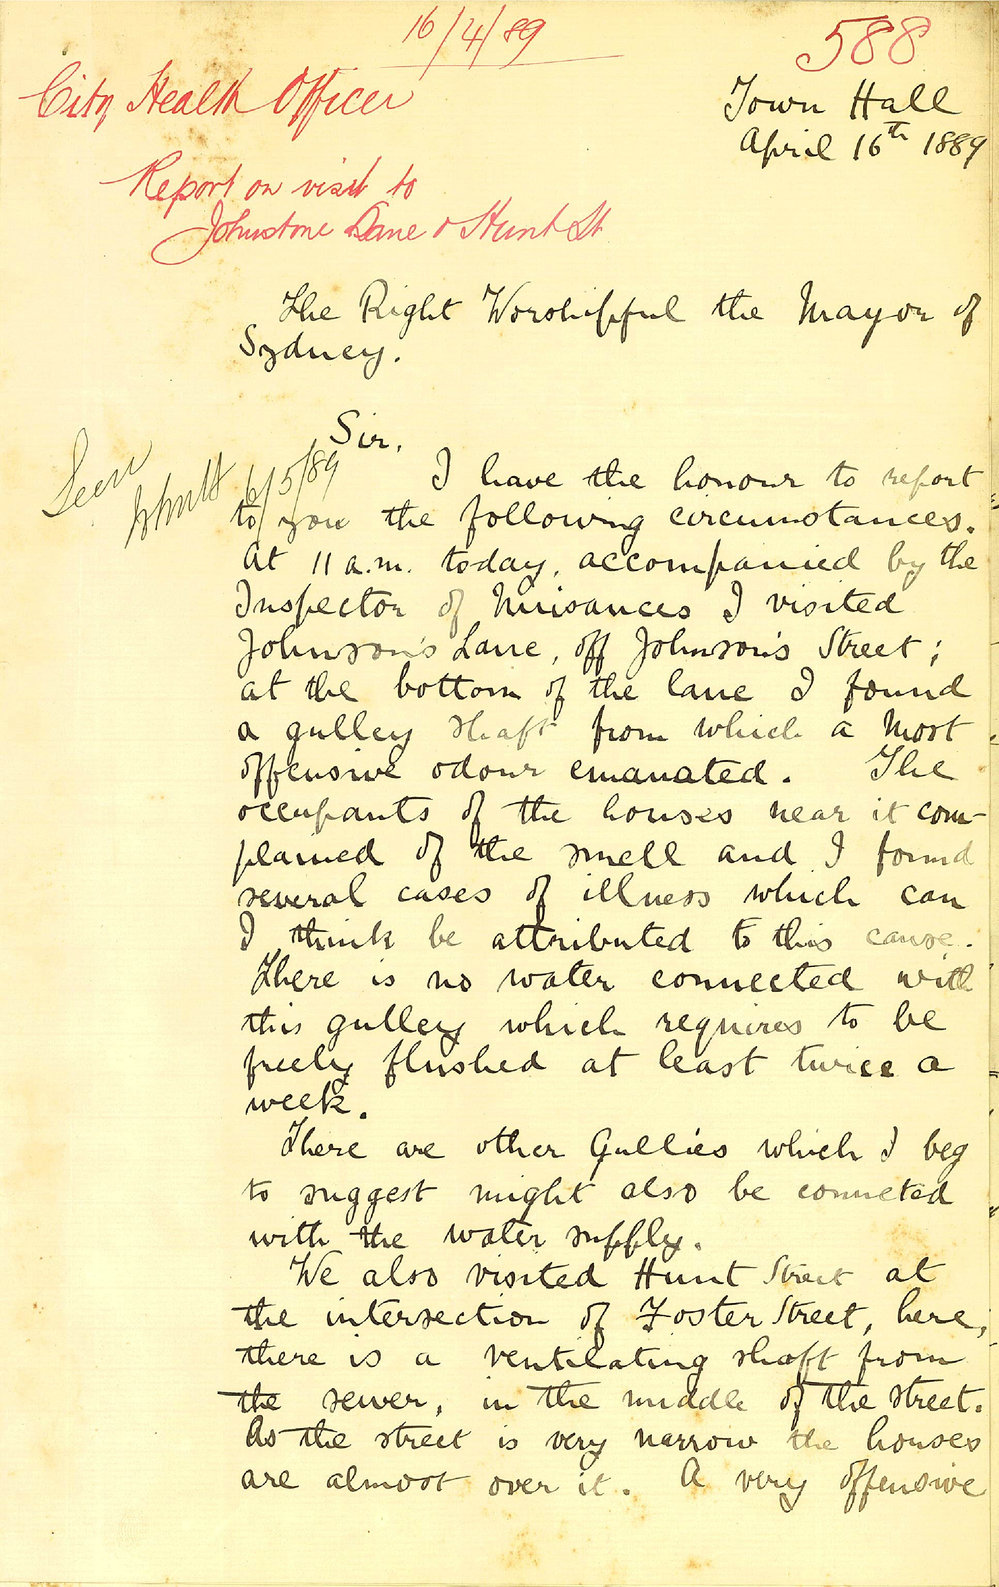 16/4/89
588
City Health Officer
Town Hall
April 16th 1889
Report on visit to
Johnstone Lane & Hunt St
The Right Worshipful the Mayor of
Sydney.
Sir,
Seen
6/5/89
I have the honour to report
to you the following circumstances.
At 11 a.m. today, accompanied by the
Inspector of Nuisances I visited
Johnson's Lane, off Johnson's Street;
at the bottom of the lane I found
a gulley shaft from which a most
offensive odour emanated. The
occupants of the houses near it com-
plained of the smell and I found
several cases of illness which can
I think be attributed to this cause.
There is no water connected with
this gulley which requires to be
freely flushed at least twice a
week.
There are other Gullies which I beg
to suggest might also be connected
with the water supply.
We also visited Hunt Street at
the intersection of Foster Street, here,
there is a ventilating shaft from
the sewer, in the middle of the street.
As the street is very narrow the houses
are almost over it. A very offensive